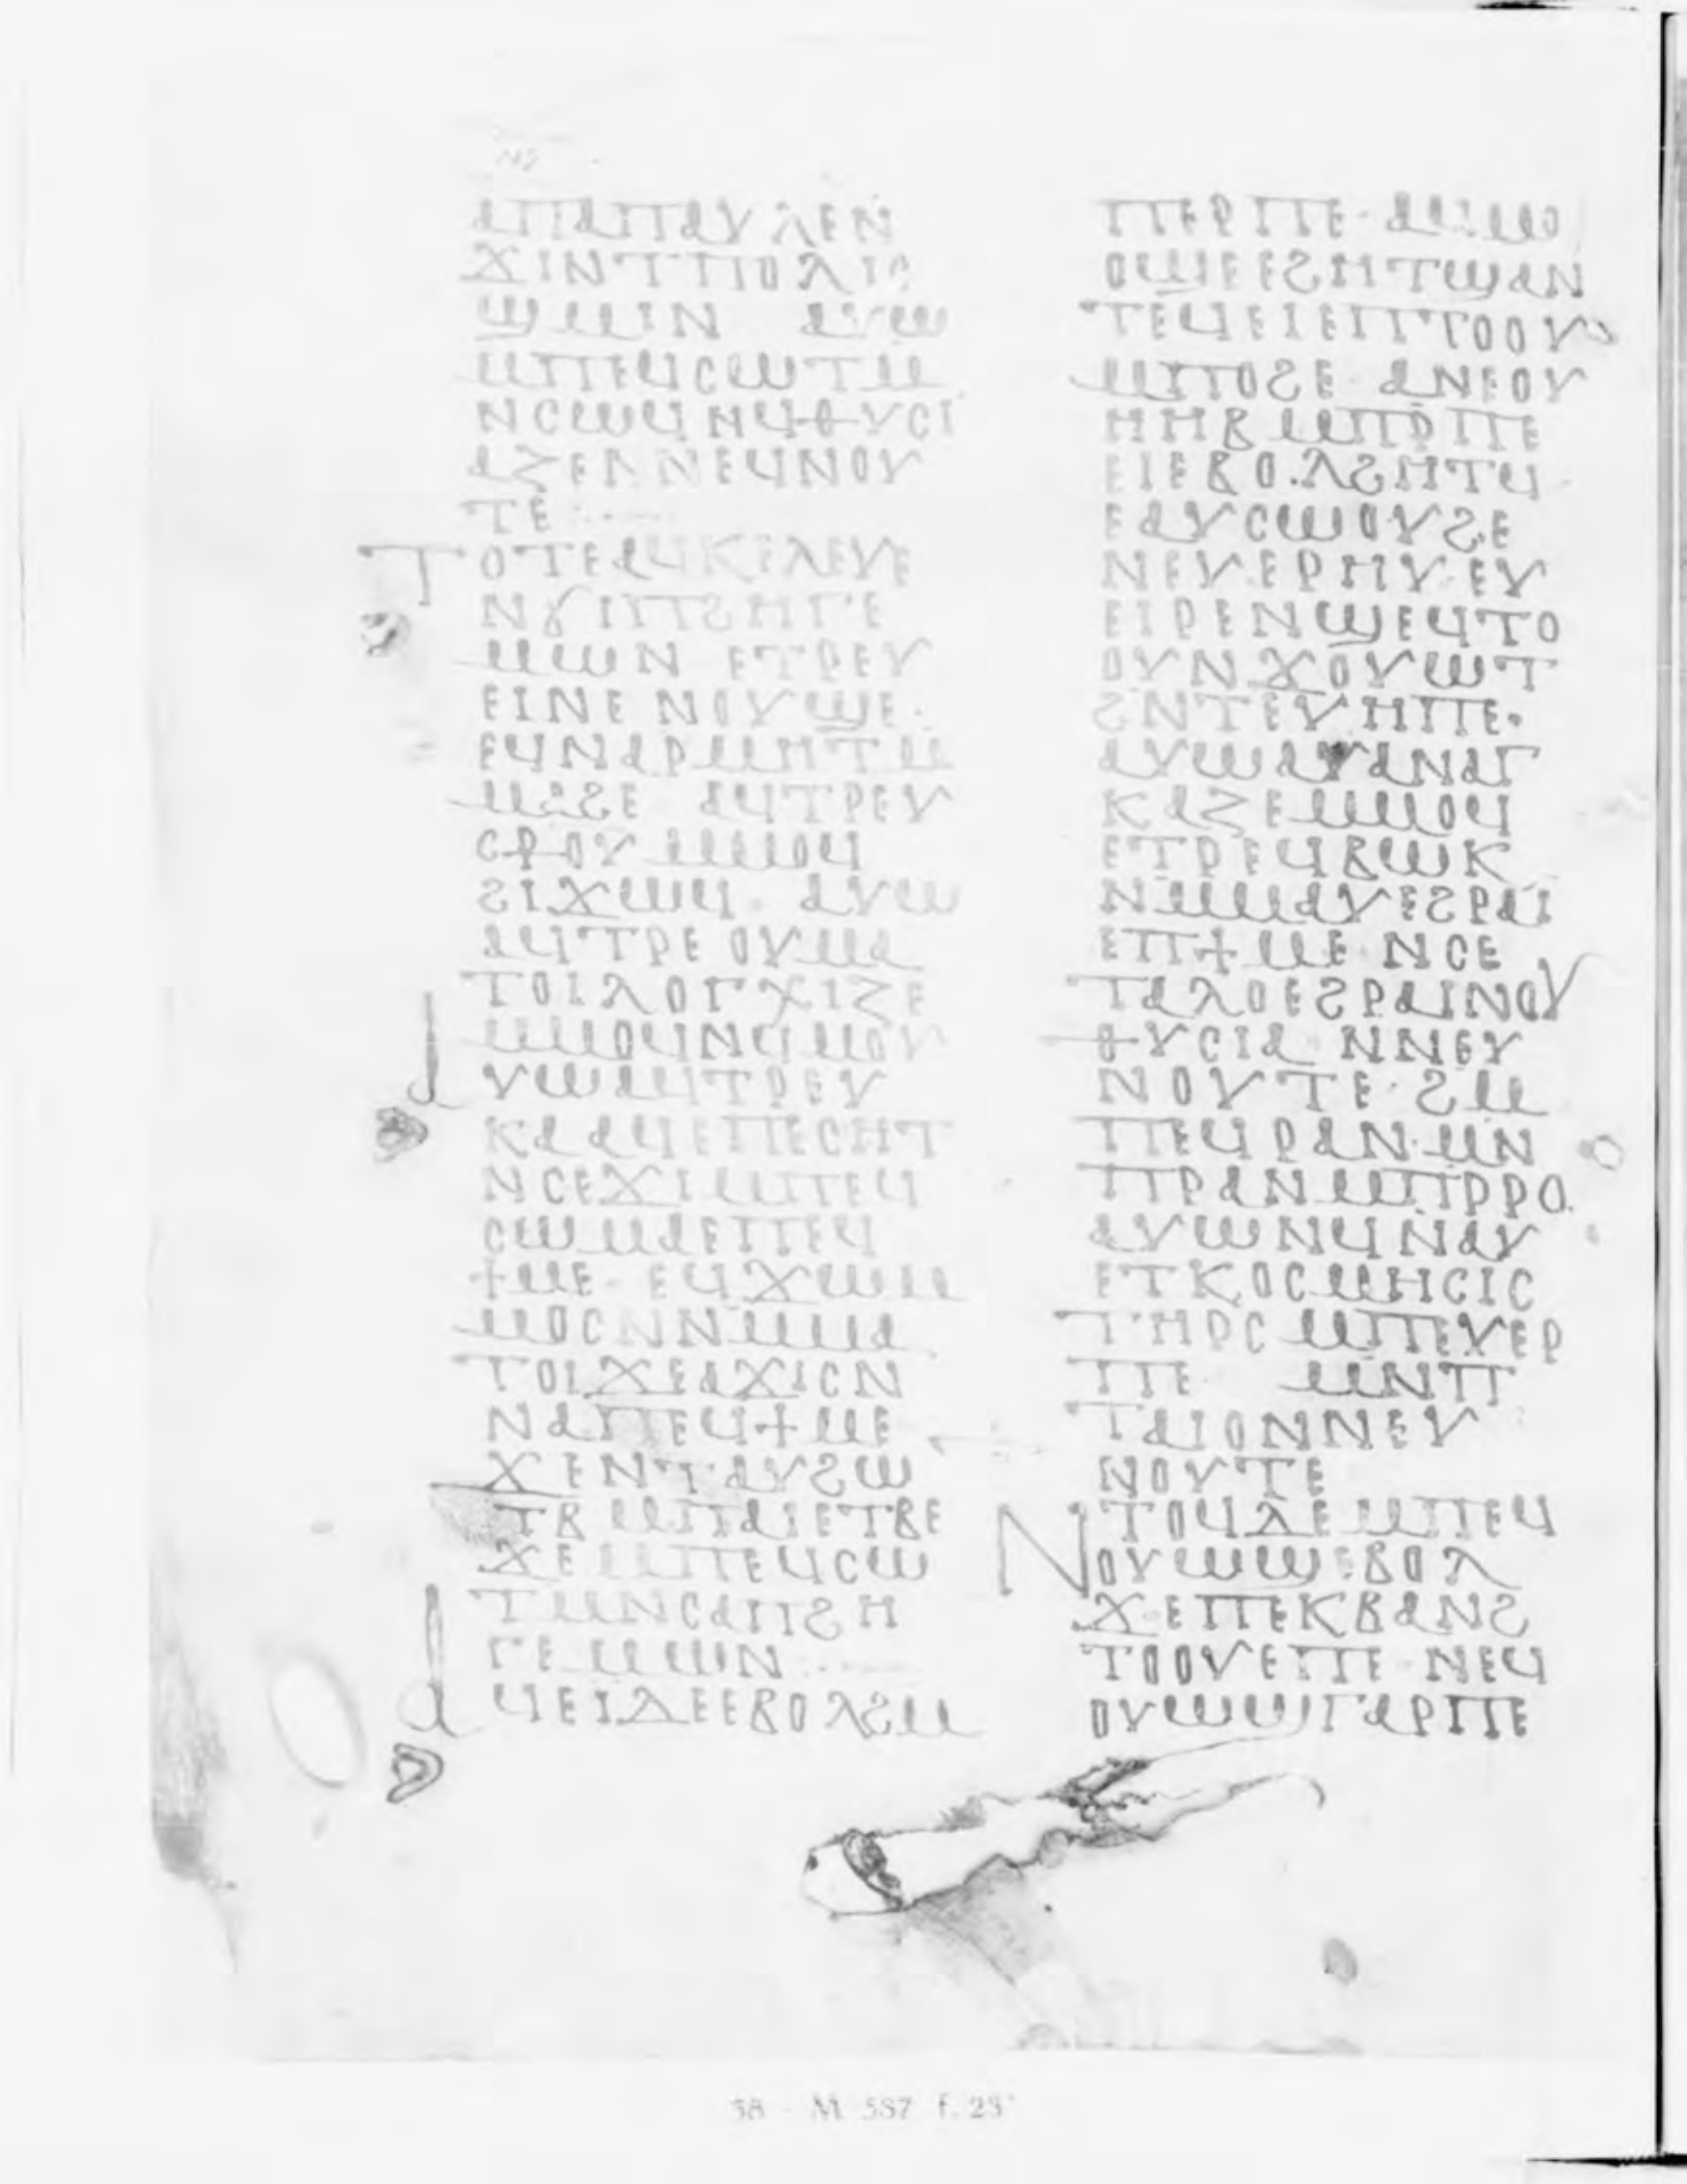 ⲁⲡⲁⲡⲁⲩⲗⲉ ⲛ
ϫⲓⲛⲧⲡⲟⲗⲓⲥ
ϣⲙⲓⲛ ⲁⲩⲱ
ⲙⲡⲉϥⲥⲱⲧⲙ
ⲛⲥⲱϥ ⲏϥⲑⲩⲥⲓ
ⲁⲍⲉ ⲛⲛⲉϥⲛⲟⲩ
ⲧⲉ
ⲧⲟⲧⲉ ⲁϥⲕⲉⲗⲉⲩⲉ
ⲛϭⲓⲡϩⲏⲅⲉ
ⲙⲱⲛ ⲉⲧⲣⲉⲩ
ⲉⲓⲛⲉ ⲛⲟⲩϣⲉ
ⲉϥⲛⲁⲣⲙⲏⲧ ⲙ
ⲙⲁϩⲉ ⲁϥⲧⲣⲉⲩ
ⲥⲣⲟⲩ ⲙⲙⲟϥ
ϩⲓϫⲱϥ ⲁⲩⲱ
ⲁϥⲧⲣⲉ ⲟⲩⲙⲁ
ⲧⲟⲓ ⲗⲟⲅⲭⲓⲍⲉ
ⲙⲙⲟϥ ⲛϥⲙⲟⲩ
ⲁⲩⲱ ⲁϥⲧⲣⲉⲩ
ⲕⲁⲁϥ ⲉⲡⲉⲥⲏⲧ
ⲛⲥⲉϫⲓ ⲙⲡⲉϥ
ⲥⲱⲙⲁ ⲉⲡⲉϥ
ϯⲙⲉ ⲉϥϫⲱ ⲙ
ⲙⲟⲥ ⲛⲛⲙⲙⲁ
ⲧⲟⲓ ϫⲉ ⲁϫⲓⲥ ⲛ
ⲛⲁⲡⲉϥϯⲙⲉ
ϫⲉ ⲛⲧⲁⲩϩⲱ
ⲧⲃ ⲙⲡⲁⲓ ⲉⲧⲃⲉ
ϫⲉ ⲙⲡⲉϥⲥⲱ
ⲧⲙ ⲛⲥⲁⲡϩⲏ
ⲅⲉⲙⲱⲛ
ⲁϥⲉⲓ ⲇⲉ ⲉⲃⲟⲗ ϩⲙ
ⲡⲉⲣⲡⲉ ⲁϥⲙⲟ
ⲟϣⲉ ⲉϩⲏⲧ ϣⲁⲛ
ⲧⲉϥⲉⲓ ⲉⲡⲧⲟⲟⲩ
ⲙⲡⲟϩⲉ ⲁⲛⲉⲟⲩ
ⲏⲏⲃ ⲙⲡⲣⲡⲉ
ⲉⲓ ⲉⲃⲟⲗ ϩⲏⲧϥ
ⲉⲁⲩⲥⲱⲟⲩϩ ⲉ
ⲛⲉⲩⲉⲣⲏⲩ ⲉⲩ
ⲉⲓⲣⲉ ⲛϣⲉϥⲧⲟ
ⲟⲩ ⲛϫⲟⲩⲱⲧ
ϩⲛ ⲧⲉⲩⲏⲡⲉ
ⲁⲩⲱ ⲁⲩⲁⲛⲁⲅ
ⲕⲁⲍⲉ ⲙⲙⲟϥ
ⲉⲧⲣⲉϥⲃⲱⲕ
ⲛⲙⲙⲁⲩ ⲉϩⲣⲁⲓ
ⲉⲡϯⲙⲉ ⲛⲥⲉ
ⲧⲁⲗⲟ ⲉϩⲣⲁⲓ ⲛⲟⲩ
ⲑⲩⲥⲓⲁ ⲛⲛⲉⲩ
ⲛⲟⲩⲧⲉ ϩⲙ
ⲡⲉϥⲣⲁⲛ ⲙⲛ
ⲡⲣⲁⲛ ⲙⲡⲣⲣⲟ
ⲁⲩⲱ ⲛϥⲛⲁⲩ
ⲉⲧⲕⲟⲥⲙⲏⲥⲓⲥ
ⲧⲏⲣⲥ ⲙⲡⲉⲩⲉⲣ
ⲡⲉ ⲙⲛ ⲡ
ⲧⲁⲓⲟ ⲛⲛⲉⲩ
ⲛⲟⲩⲧⲉ
ⲛⲧⲟϥ ⲇⲉ ⲙⲡⲉϥ
ⲟⲩⲱϣ ⲉⲃⲟⲗ
ϫⲉ ⲡⲉⲕⲃⲁⲛϩ
ⲧⲟⲟⲩⲉ ⲡⲉ ⲛⲉϥ
ⲟⲩⲱϣ ⲅⲁⲣ ⲡⲉ
58 - M 587 f. 28ᵛ